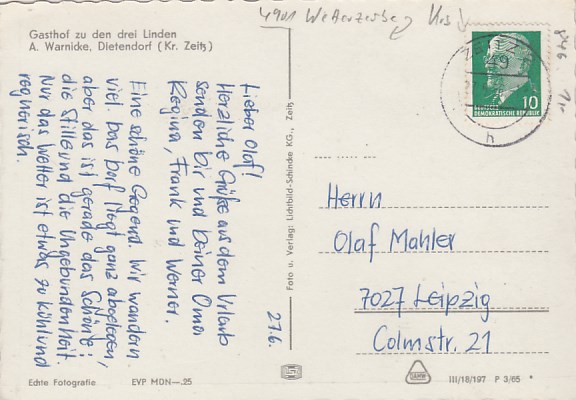 4901 Wetterzeube
Gasthof zu den drei Linden
A. Warnicke, Dietendorf (Kr. Zeitz)
27.6.
Lieber Olaf!
Herzliche Grüße aus dem Urlaub
senden Dir und Deiner Oma
Regina, Frank und Werner.
Eine schöne Gegend. Wir wandern
viel. Das Dorf liegt ganz abgelegen,
aber das ist gerade das Schöne:
die Stille und die Ungebundenheit.
Nur das Wetter ist etwas zu kühl und
regnerisch.
Foto u. Verlag: Lichtbild-Schincke KG., Zeitz
ZEITZ
h
10
DEMOKRATISCHE REPUBLIK
Herrn
Olaf Mahler
7027 Leipzig
Colmstr. 21
Echte Fotografie EVP MDN —.25
III/18/197 P 3/65 *